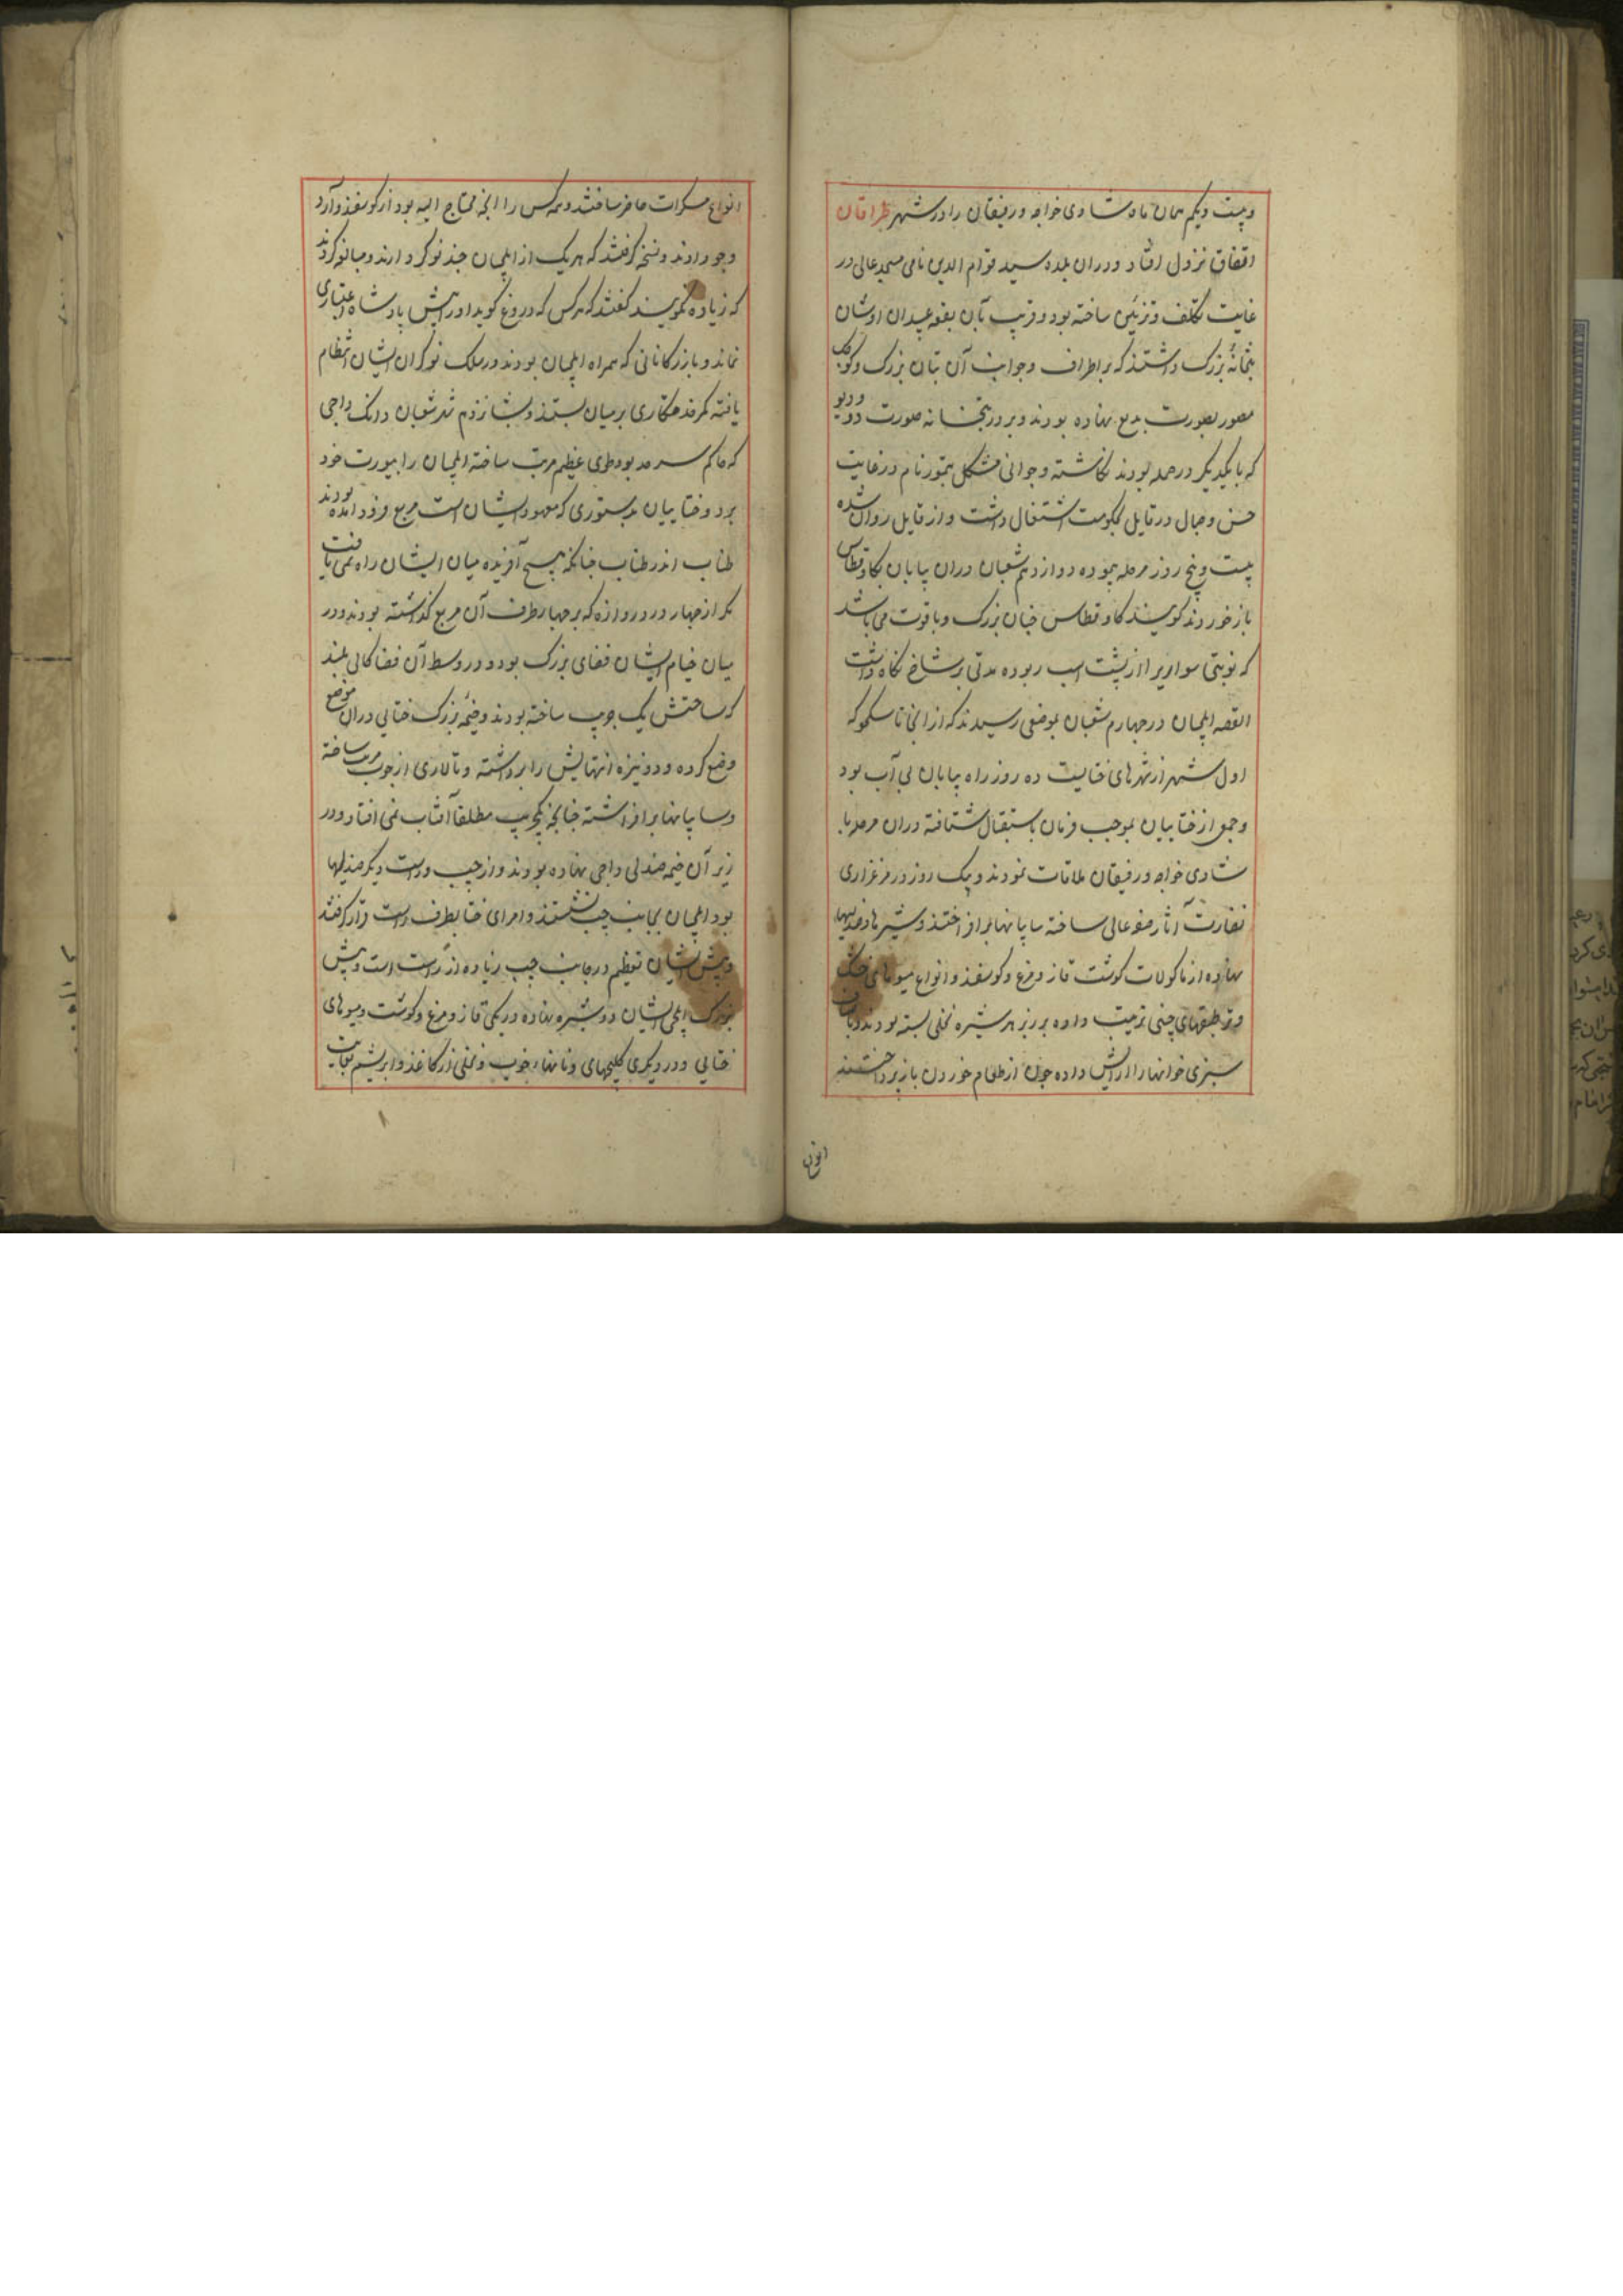 و بیست و یکم همان ماه شادی خواجه و رفیقان را در شهر طرافان
اتفاق نزول افتاد و دران بلده سید قوام الدین نامی مسجد عالی در
غایت تکلف و تزئین ساخته بود و قریب بآن بقعه عبدان اوثان
بتخانهٔ بزرگ داشتند که بر اطراف و جوانب آن بتان بزرگ و کوچک
مصور بصورت بدیع نهاده بودند و بر در بتخانه صورت دو دیو
که با یکدیگر در حمله بودند نگاشته و جوانی منکلی تیمور نام در غایت
حسن و جمال در قایل بحکومت اشتغال داشت و از قایل روان شده
بیست و پنج روز مرحله پیموده دوازدهم شعبان دران بیابان بگاو قطاس
بازخوردند گویند گاو قطاس چنان بزرگ و با قوت می باشد
که نوبتی سواریرا از پشت اسب ربوده مدتی بر شاخ نگاه داشت
القصه ایلچیان در چهاردهم شعبان بموضعی رسیدند که از انجا تا سکجو که
اول شهر از شهرهای ختایست ده روز راه بیابان بی آب بود
و جمعی از ختاییان بموجب فرمان باستقبال شتافته دران مرحله با
شادی خواجه و رفیقان ملاقات نمودند و یک روز در مرغزاری
نضارت آثار صفه عالی ساخته سایبانها برافراختند و شیرها و صندلیها
نهاده از ماکولات گوشت قاز و مرغ و گوسفند و انواع میوهای خشک
و تر طبقهای چینی ترتیب داده بر زبر هر شیره نخلی بسته بودند و بانواع
سبزی خوانها را آرایش داده چون از طعام خوردن باز پرداختند
انواع
انواع مسکرات حاضر ساختند و همه کس را انچه محتاج الیه بود از گوسفند و آرد
و جو دادند و نسخه گرفتند که هر یک از ایلچیان چند نوکر دارند و مبالغه کردند
که زیاده نگویند گفتند که هر کس که دروغ گوید او را پیش پادشاه اعتباری
نماند و بازرگانانی که همراه ایلچیان بودند در سلک نوکران ایشان انتظام
یافته کمر خدمتکاری بر میان بستند و شانزدهم شهر شعبان دانک داجی
که حاکم سرحد بود طوی عظیم مرتب ساخته ایلچیان را بیورت خود
برد و ختاییان بدستوری که معهود ایشان است مربع فرود آمده بودند
طناب اندر طناب چنانکه هیچ آفریده میان ایشان راه نمی یافت
مگر از چهار در دروازه که بر چهار طرف آن مربع گذاشته بودند و در
میان خیام ایشان فضای بزرگ بود و در وسط آن فضا کالی بلند
که ساحتش یک جریب ساخته بودند و خیمهٔ بزرگ ختایی دران موضع
وضع کرده و دو نیزه انتهایش را برداشته و تالاری از چوب مرتب ساخته
و سایبانها برافراشته چنانچه یک جریب مطلقا آفتاب نمی افتاد و در
زیر آن خیمه صندلی داجی نهاده بودند و از چپ و راست دیگر صندلیها
بود ایلچیان بجانب چپ نشستند و امرای ختا بطرف راست قرار گرفتند
و پیش ایشان تعظیم در جانب چپ زیاده از راست است و پیش
بزرگ ایلچی ایشان دو شیره نهاده در یکی قاز و مرغ و گوشت و میوهای
ختایی و در دیگری کلیچهای و نانهاء خوب و نخلی از کاغذ و ابریشم بغایت